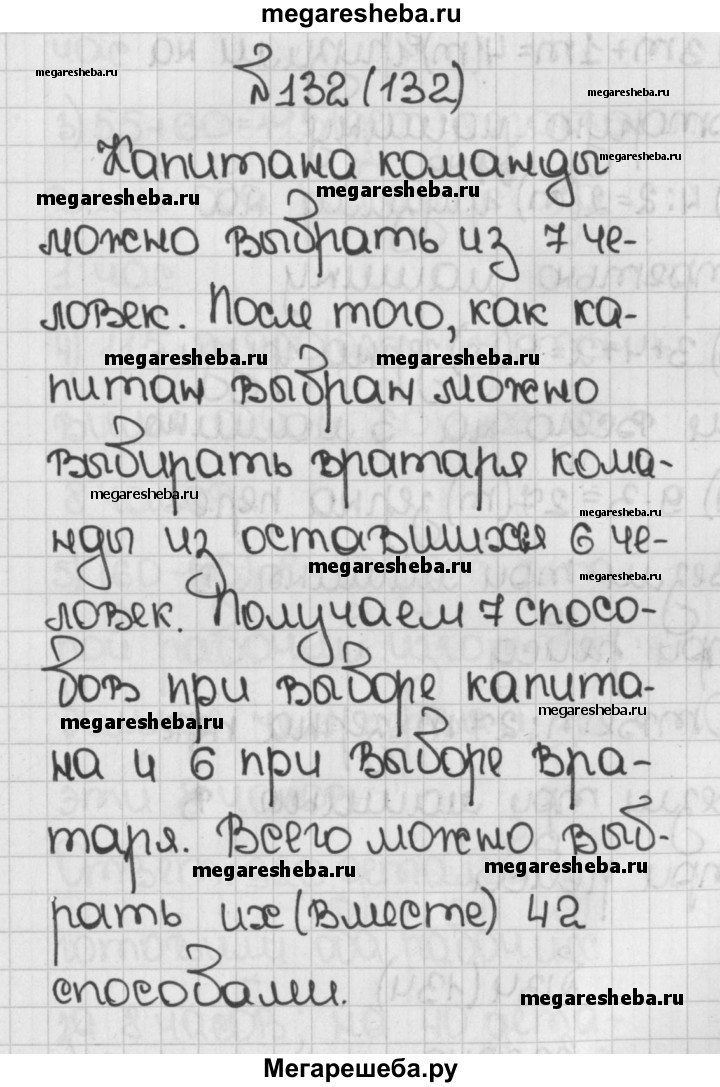 megaresheba.ru
megaresheba.ru
№132 (132)
megaresheba.ru
Капитана команды
megaresheba.ru
megaresheba.ru
megaresheba.ru
можно выбрать из 7 че-
ловек. После того, как ка-
megaresheba.ru
megaresheba.ru
питан выбран можно
выбирать вратаря кома-
megaresheba.ru
megaresheba.ru
нды из оставшихся 6 че-
megaresheba.ru
megaresheba.ru
ловек. Получаем 7 спосо-
бов при выборе капита-
megaresheba.ru
megaresheba.ru
на и 6 при выборе вра-
таря. Всего можно выб-
megaresheba.ru
megaresheba.ru
рать их (вместе) 42
способами.
megaresheba.ru
Мегарешеба.ру